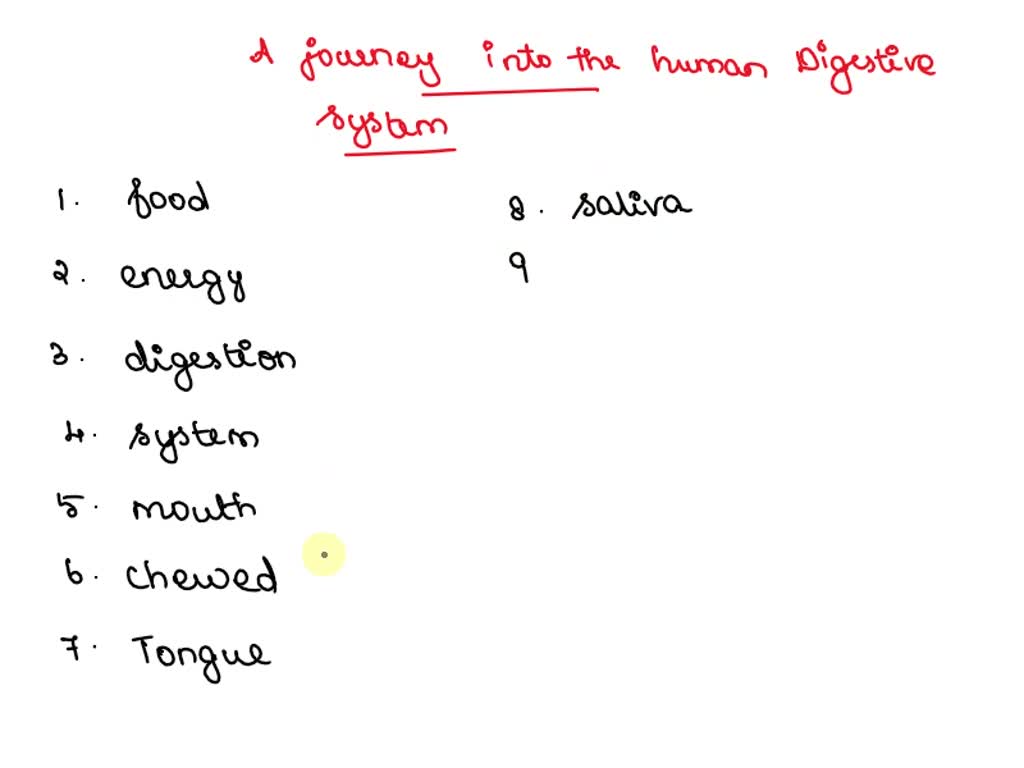 A journey into the human Digestive
system
1. food
2. energy
3. digestion
4. system
5. mouth
6. chewed
7. Tongue
8. saliva
9